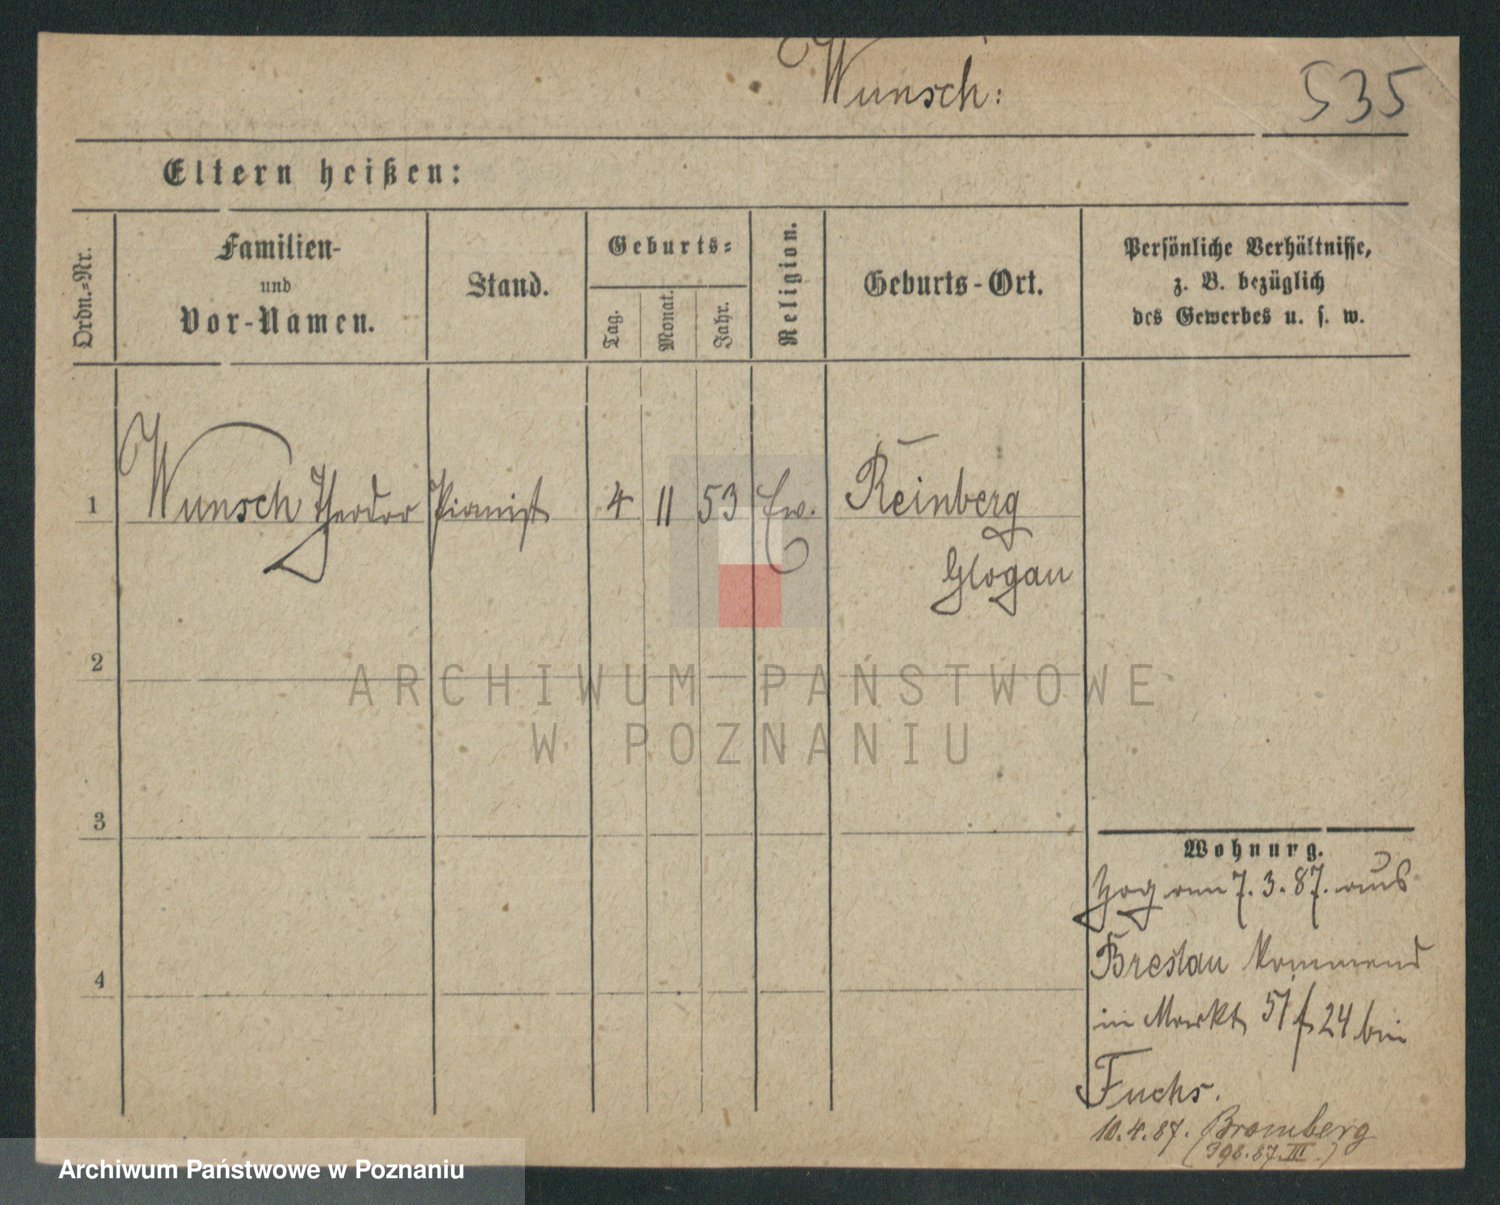 Wunsch:
535
Eltern heißen:
Ordn.-Nr.
Familien-
und
Vor-Namen.
Stand.
Geburts-
Tag.
Monat.
Jahr.
Religion.
Geburts-Ort.
Persönliche Verhältnisse,
z. B. bezüglich
des Gewerbes u. s. w.
1 Wunsch Theodor Pianist 4 11 53 Ev. Reinberg
Glogau
2
ARCHIWUM PAŃSTWOWE
W POZNANIU
3
Wohnung.
Zog am 7.3.87. aus
4
Breslau kommend
in Markt 51 24 bei
Fuchs.
10.4.87. Bromberg
(398.87.III)
Archiwum Państwowe w Poznaniu